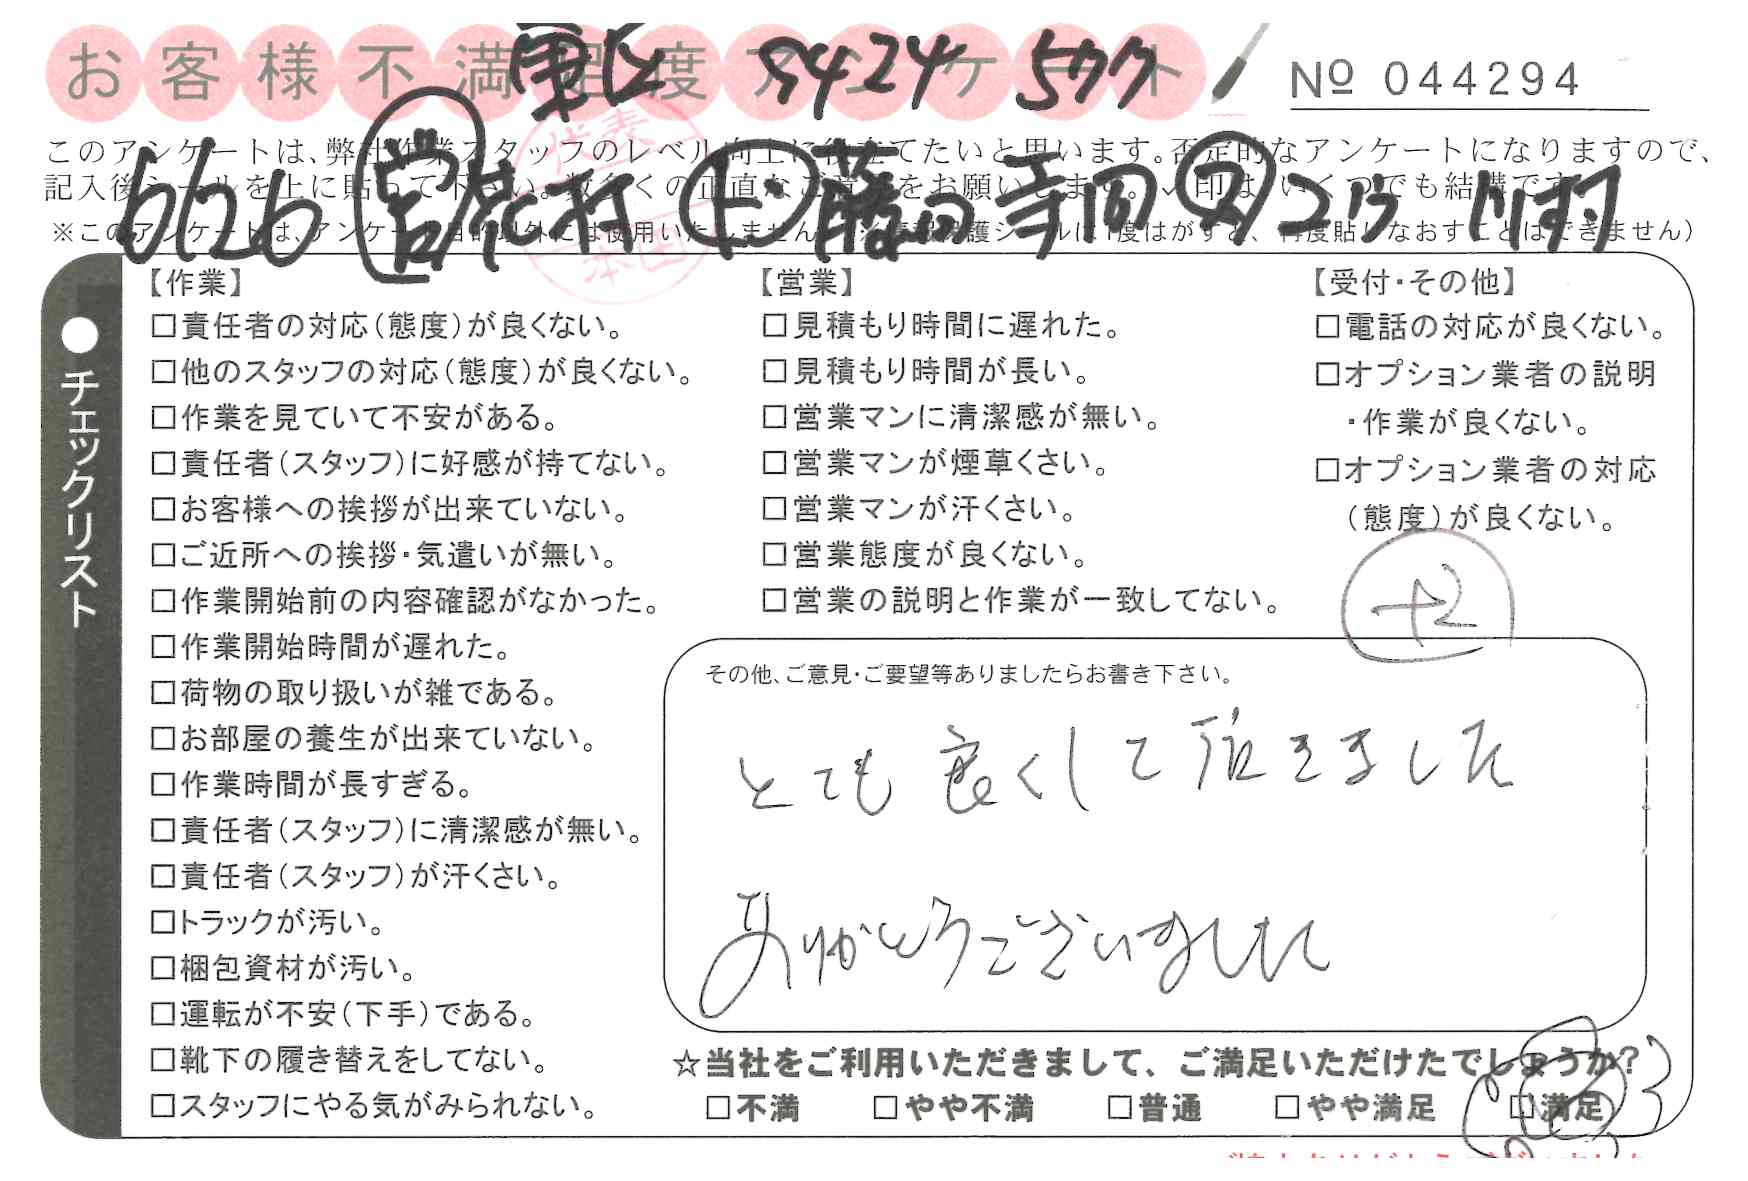 お客様不満足度アンケート
№ 044294
東レ 8424 5クク
このアンケートは、弊社作業スタッフのレベル向上に役立てたいと思います。否定的なアンケートになりますので、
記入後シールを上に貼って下さい。数多くの正直なご意見をお願いします。✓印は、いくつでも結構です。
※このアンケートは、アンケート目的以外には使用いたしません。(※情報保護シールは1度はがすと、再度貼りなおすことはできません)
626
代表
本田
チェックリスト
【作業】
□責任者の対応(態度)が良くない。
□他のスタッフの対応(態度)が良くない。
□作業を見ていて不安がある。
□責任者(スタッフ)に好感が持てない。
□お客様への挨拶が出来ていない。
□ご近所への挨拶・気遣いが無い。
□作業開始前の内容確認がなかった。
□作業開始時間が遅れた。
□荷物の取り扱いが雑である。
□お部屋の養生が出来ていない。
□作業時間が長すぎる。
□責任者(スタッフ)に清潔感が無い。
□責任者(スタッフ)が汗くさい。
□トラックが汚い。
□梱包資材が汚い。
□運転が不安(下手)である。
□靴下の履き替えをしてない。
□スタッフにやる気がみられない。
【営業】
□見積もり時間に遅れた。
□見積もり時間が長い。
□営業マンに清潔感が無い。
□営業マンが煙草くさい。
□営業マンが汗くさい。
□営業態度が良くない。
□営業の説明と作業が一致してない。
【受付・その他】
□電話の対応が良くない。
□オプション業者の説明
・作業が良くない。
□オプション業者の対応
(態度)が良くない。
+2
その他、ご意見・ご要望等ありましたらお書き下さい。
とても良くして頂きました
ありがとうございました
☆当社をご利用いただきまして、ご満足いただけたでしょうか?
□不満 □やや不満 □普通 □やや満足 □満足